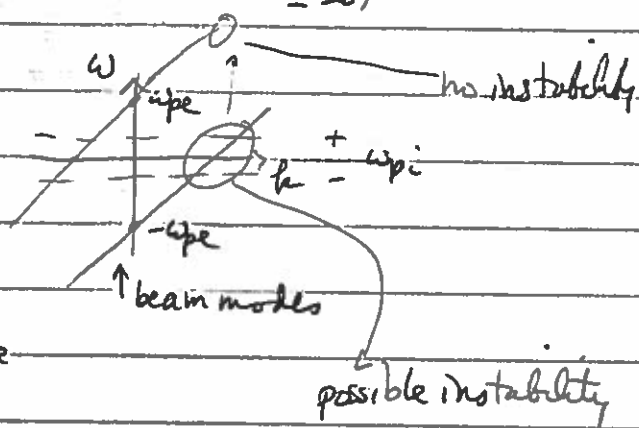 ω
ωpe
no instability
+
k - ωpi
-ωpe
↑ beam modes
possible instability